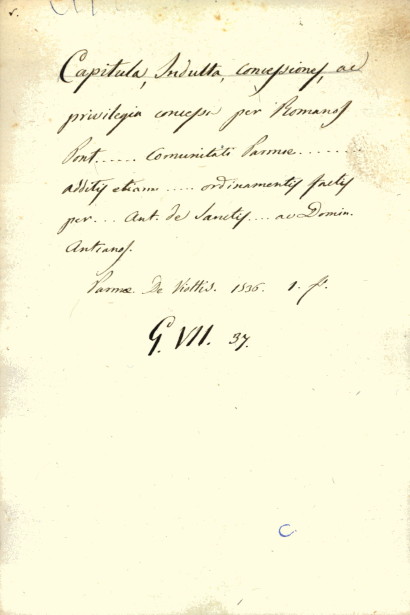 s.
Capitula, Indulta, concessiones, ac
privilegia concessa per Romanos
Pont...... Comunitati Parmæ........
additis etiam ..... ordinamentis factis
per... Ant. de Sanctis.... ac Domin.
Antianos.
Parmæ. De Viottis. 1536. 1. f.
G. VII. 37.
C